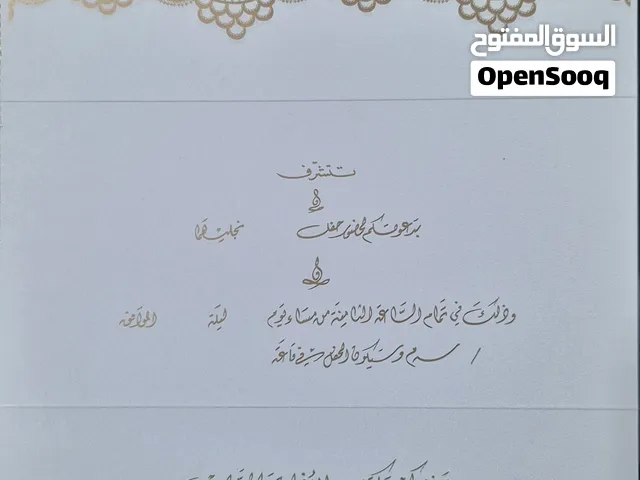 السوق المفتوح
OpenSooq
تتشرف
بدعوتكم لحضور حفل نجليهما
وذلك في تمام الساعة الثامنة من مساء يوم ليلة الموافق
/ سـ م وسيكون الحفل في قاعة